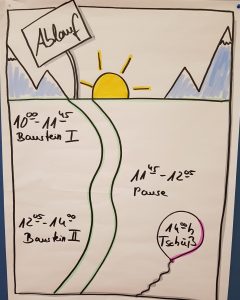 Ablauf
10⁰⁰-11⁴⁵
Baustein I
11⁴⁵-12⁰⁵
Pause
12⁰⁵-14⁰⁰
Baustein II
14⁰⁰h
Tschüß